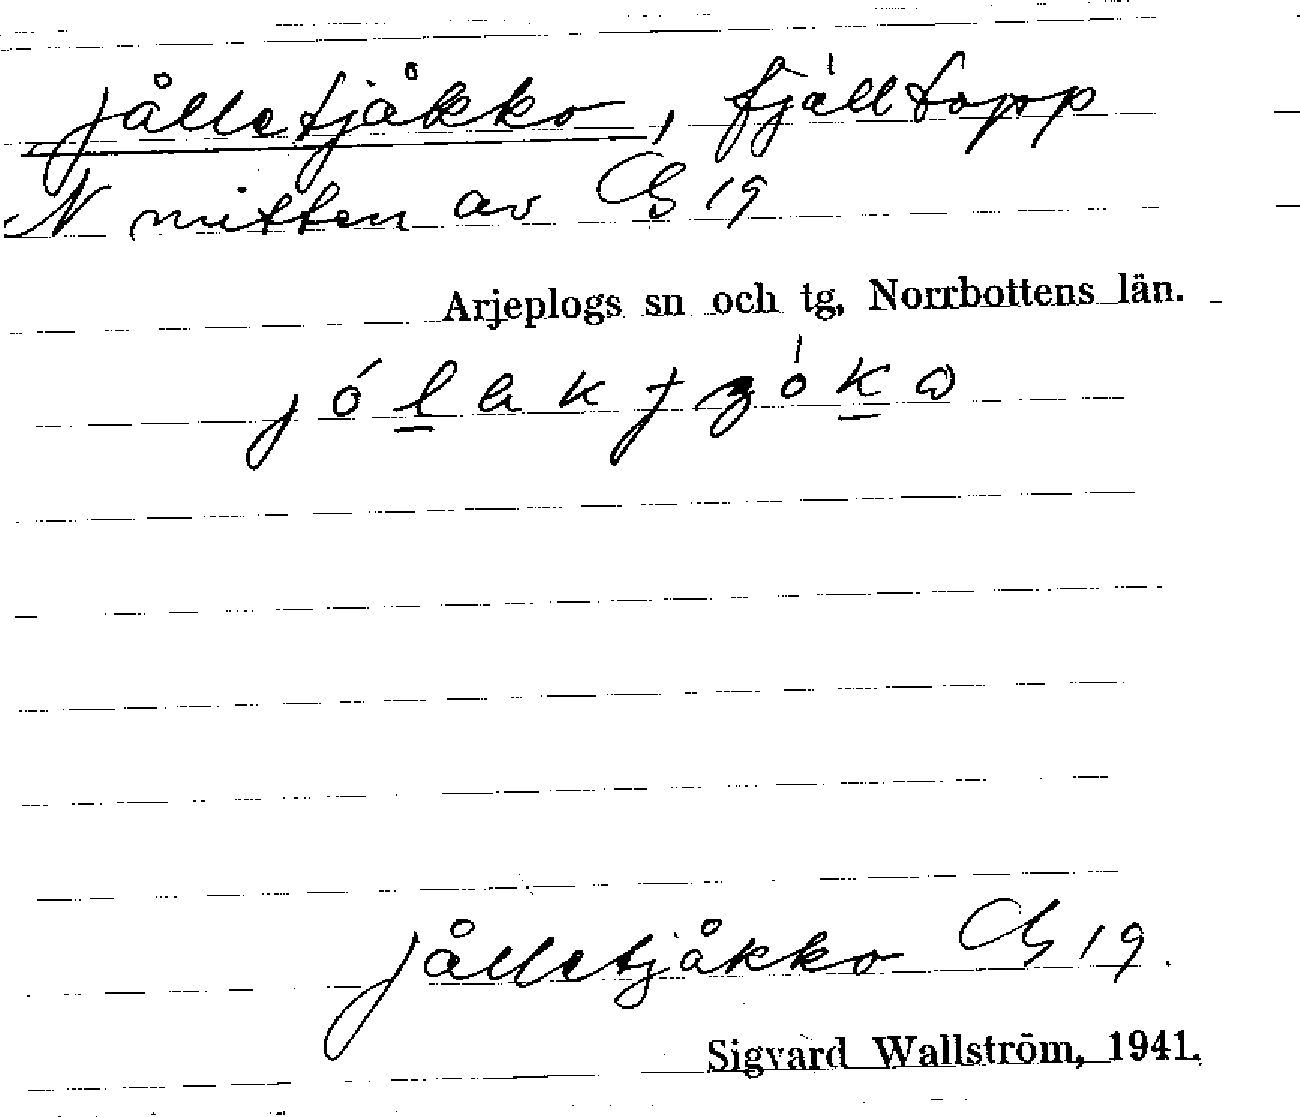 Jålletjåkko, fjälltopp
N mitten av Gb 19
Arjeplogs sn och tg, Norrbottens län.
Jålletjåkko Gb 19.
Sigvard Wallström, 1941.